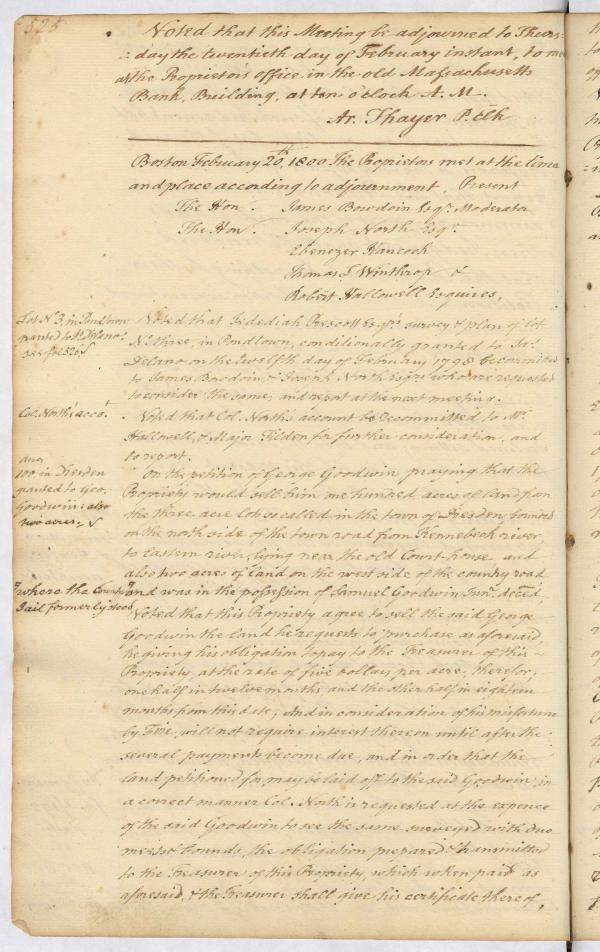 525
Voted that this Meeting be adjourned to Thurs-
:day the twentieth day of February instant, to me
at the Proprietors office in the old Massachusetts
Bank, Building, at ten o'clock A. M.
Ar. Thayer P. Clk
Boston February 20th, 1800 The Proprietors met at the time
and place according to adjournment. Present
The Hon. James Bowdoin Esqr. Moderator
The Hon. Joseph North Esqr.
Ebenezer Hancock
Thomas L Winthrop &
Robert Hallowell Esquires,
Lot No. 3, in Pondtown
granted to Js. Delano
Voted that Jedediah Prescott Esqrs. survey & plan of lot
No. three, in Pondtown, conditionally granted to Ja:
Delano on the twelfth day of February 1798 be committed
to James Bowdoin & Joseph North Esqrs. who are requested
to consider the same, and report at the next meeting.
Col. North's acco.t
Voted that Col. North's account be recommitted to Mr.
Hallowell, & Major Tilden for further consideration, and
to report.
acres
100 in Dresden
granted to Geo.
Goodwin: also
two acres,
On the petition of George Goodwin praying that the
Propriety would sell him one hundred acres of land from
the three acre lots so called in the town of Dresden bounded
on the north side of the town road from Kennebeck river,
to Eastern river, lying near the old Court-house and
also two acres of land on the west side of the country road
"where the County
Jail formerly stood
and was in the possession of Samuel Goodwin Junr. deced,
Voted that this Propriety agree to sell the said George
Goodwin the land he requests to purchase as aforesaid,
he giving his obligation to pay to the Treasurer of this
Propriety, at the rate of five dollars per acre, therefor,
one half in twelve months and the other half in eighteen
months from this date; And in consideration of his misfortune
by Fire, will not require interest thereon until after the
several payments become due, and in order that the
land petitioned for, may be laid off to the said Goodwin in
a correct manner Col. North is requested at the expence
of the said Goodwin to see the same surveyed with due
meets & bounds, the obligation prepared & transmitted
to the Treasurer of this Propriety, which when paid as
aforesaid, & the Treasurer shall give his certificate thereof,